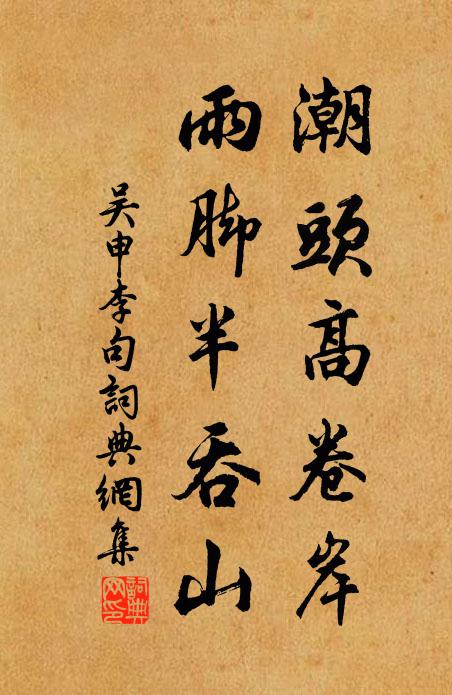 潮頭高卷岸
雨脚半吞山
吴申李句詞典網集
詞典網印